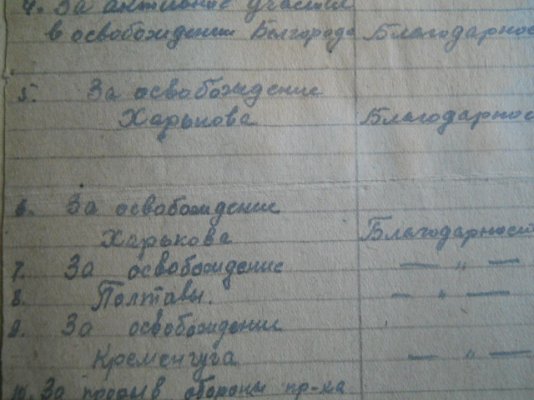 4. За активные участия
в освобождении Белгорода Благодарнос
5. За освобождение
Харькова Благодарнос
6. За освобождение
Харькова Благодарност
7. За освобождение — „ —
8. Полтавы. — „ —
9. За освобождении
Кременчуга — „ —
10. За прорыв обороны пр-ка